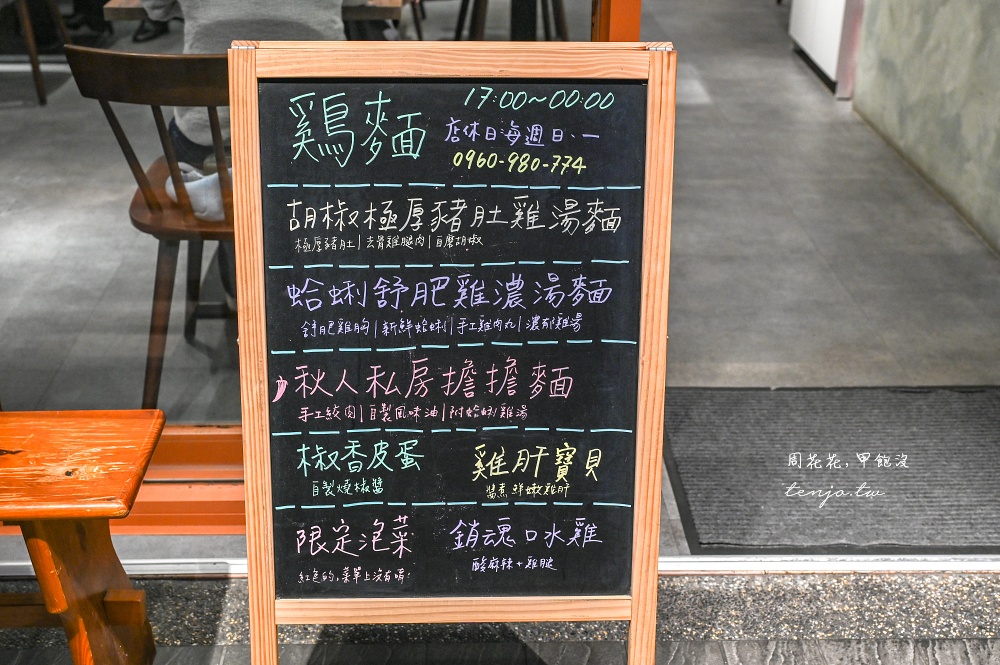 鷄麵
17:00~00:00
店休日:每週日、一
0960-980-774
胡椒極厚豬肚雞湯麵
極厚豬肚|去骨雞腿肉|自磨胡椒
蛤蜊舒肥雞濃湯麵
舒肥雞胸|新鮮蛤蜊|手工雞肉丸|濃郁雞湯
秋人私房擔擔麵
手工絞肉|自製風味油|附蛤蜊雞湯
椒香皮蛋
自製燒椒醬
雞肝寶貝
醬煮鮮嫩雞肝
限定泡菜
紅色的,菜單上沒有唷!
銷魂口水雞
酸麻辣+雞腿
周花花,甲飽沒
tenjo.tw